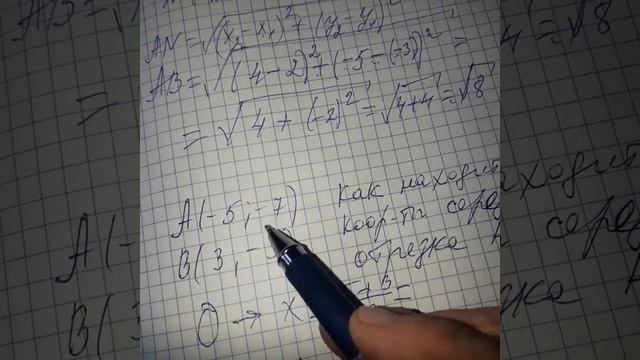 AN = √(x₂ - x₁)² + (y₂ y₁)
AB = √(4-2)² + (-5-(-3))² =
= √4 + (-2)² = √4+4 = √8
A(-5; -7)
B(3; -
как находит
коор-ты серед
отрезка
O → x =